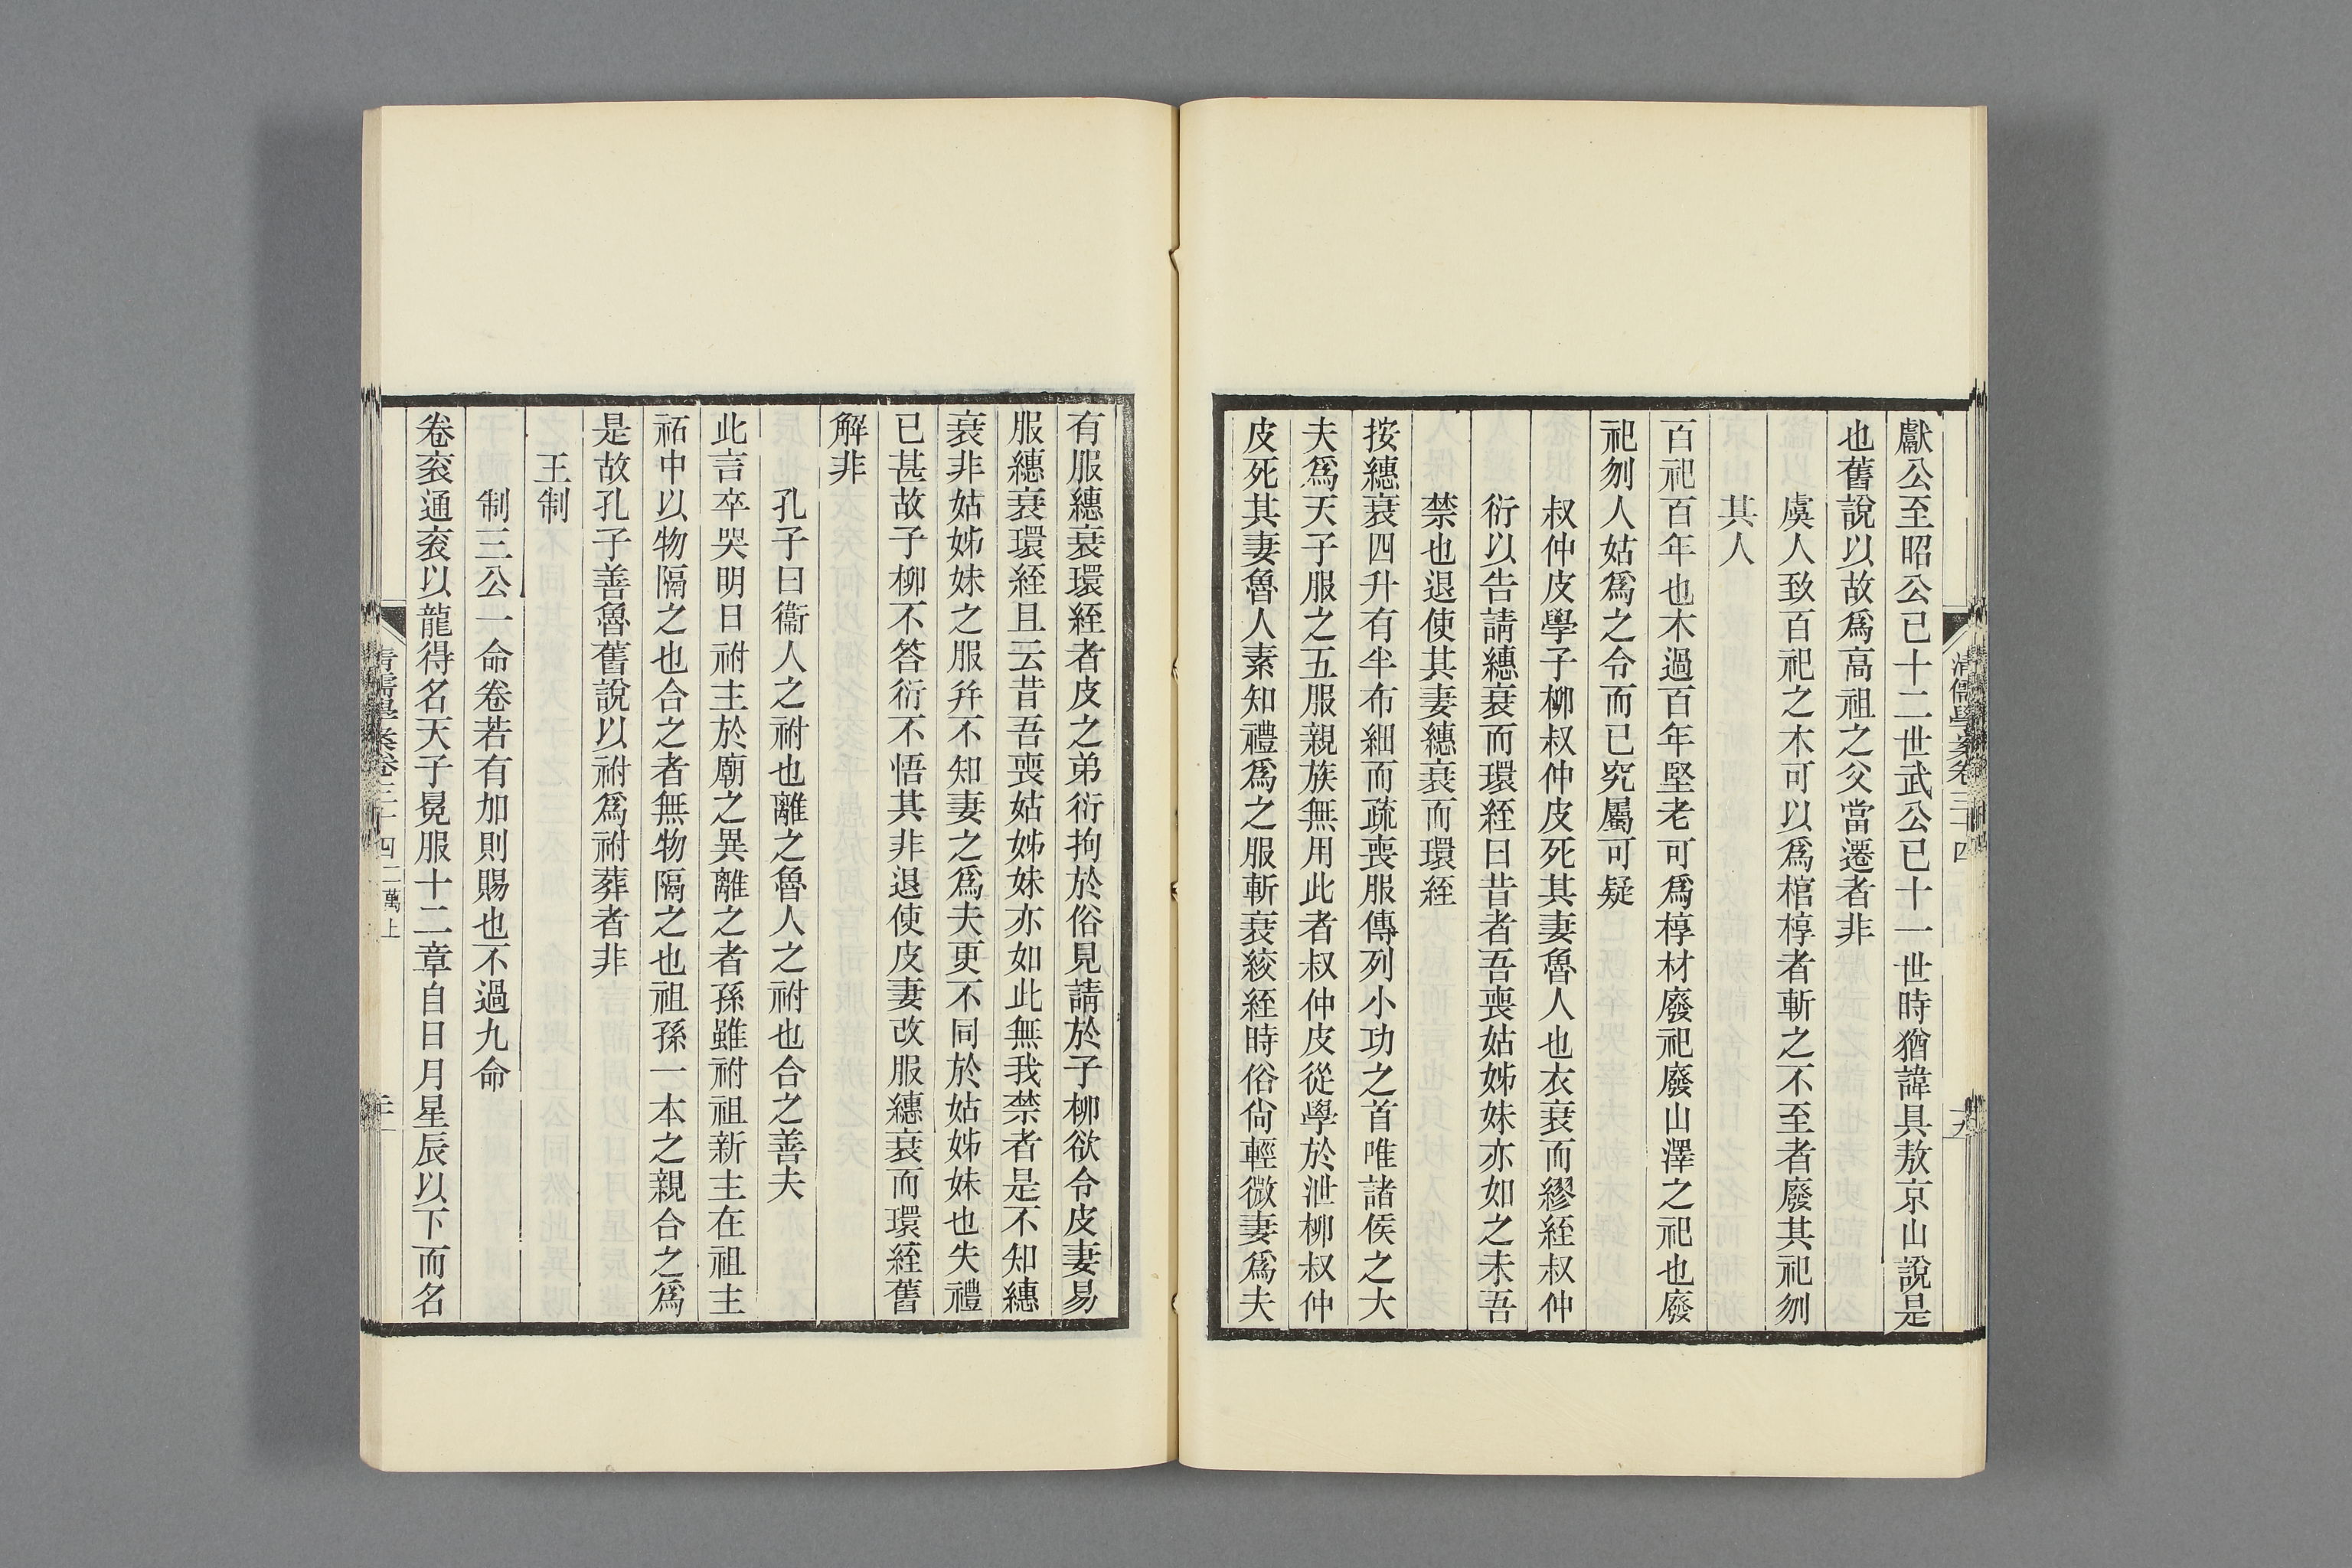 獻公至昭公已十二世武公已十一世時猶諱具敖京山說是
也舊說以故爲高祖之父當遷者非
虞人致百祀之木可以爲棺椁者斬之不至者廢其祀刎
其人
百祀百年也木過百年堅老可爲椁材廢祀廢山澤之祀也廢
祀刎人姑爲之令而已究屬可疑
叔仲皮學子柳叔仲皮死其妻魯人也衣衰而繆絰叔仲
衍以告請繐衰而環絰曰昔者吾喪姑姊妹亦如之末吾
禁也退使其妻繐衰而環絰
按繐衰四升有半布細而疏喪服傳列小功之首唯諸侯之大
夫爲天子服之五服親族無用此者叔仲皮從學於泄柳叔仲
皮死其妻魯人素知禮爲之服斬衰絞絰時俗尙輕微妻爲夫
有服繐衰環絰者皮之弟衍拘於俗見請於子柳欲令皮妻易
服繐衰環絰且云昔吾喪姑姊妹亦如此無我禁者是不知繐
衰非姑姊妹之服幷不知妻之爲夫更不同於姑姊妹也失禮
已甚故子柳不答衍不悟其非退使皮妻改服繐衰而環絰舊
解非
孔子曰衞人之祔也離之魯人之祔也合之善夫
此言卒哭明日祔主於廟之異離之者孫雖祔祖新主在祖主
祏中以物隔之也合之者無物隔之也祖孫一本之親合之爲
是故孔子善魯舊說以祔爲祔葬者非
王制
制三公一命卷若有加則賜也不過九命
卷衮通衮以龍得名天子冕服十二章自日月星辰以下而名